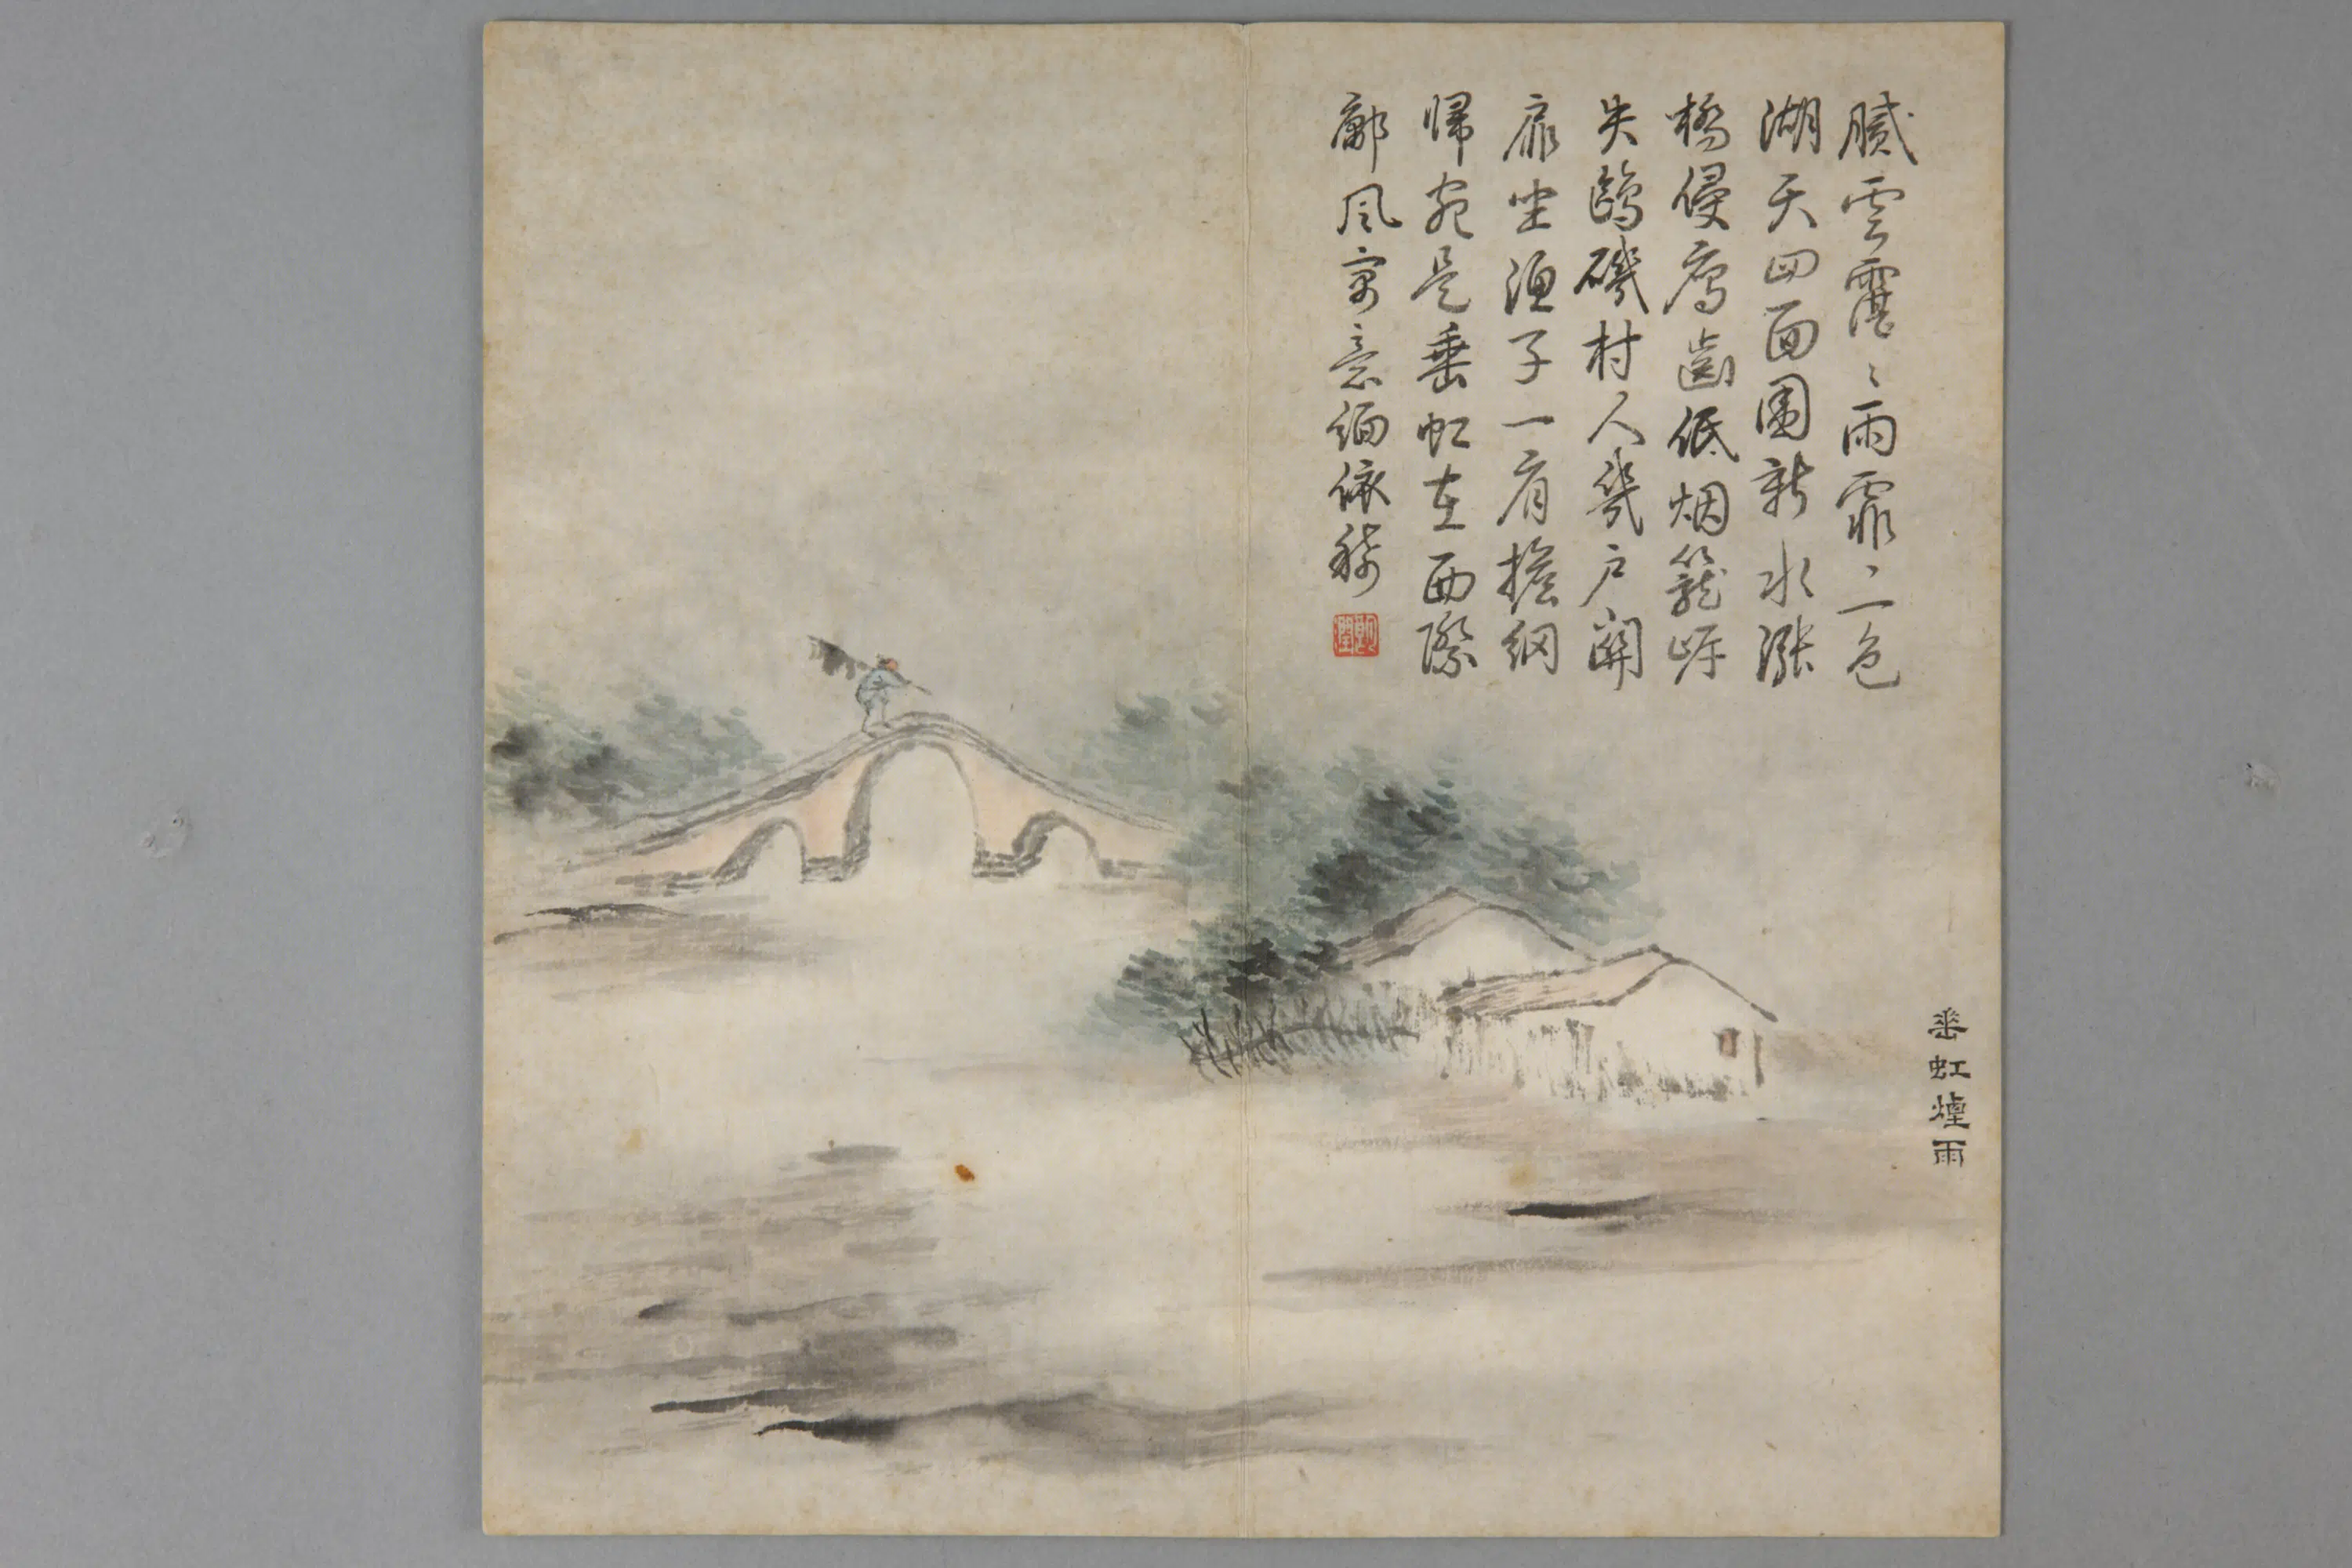 膩雲霮〻雨霏〻一色
湖天四面圍新水漲
橋侵鴈齒低烟籠岸
失鷗磯村人幾戶關
扉坐漁子一肩擔網
歸宛是垂虹在西際
鄘風寓意緬依稀
垂虹煙雨